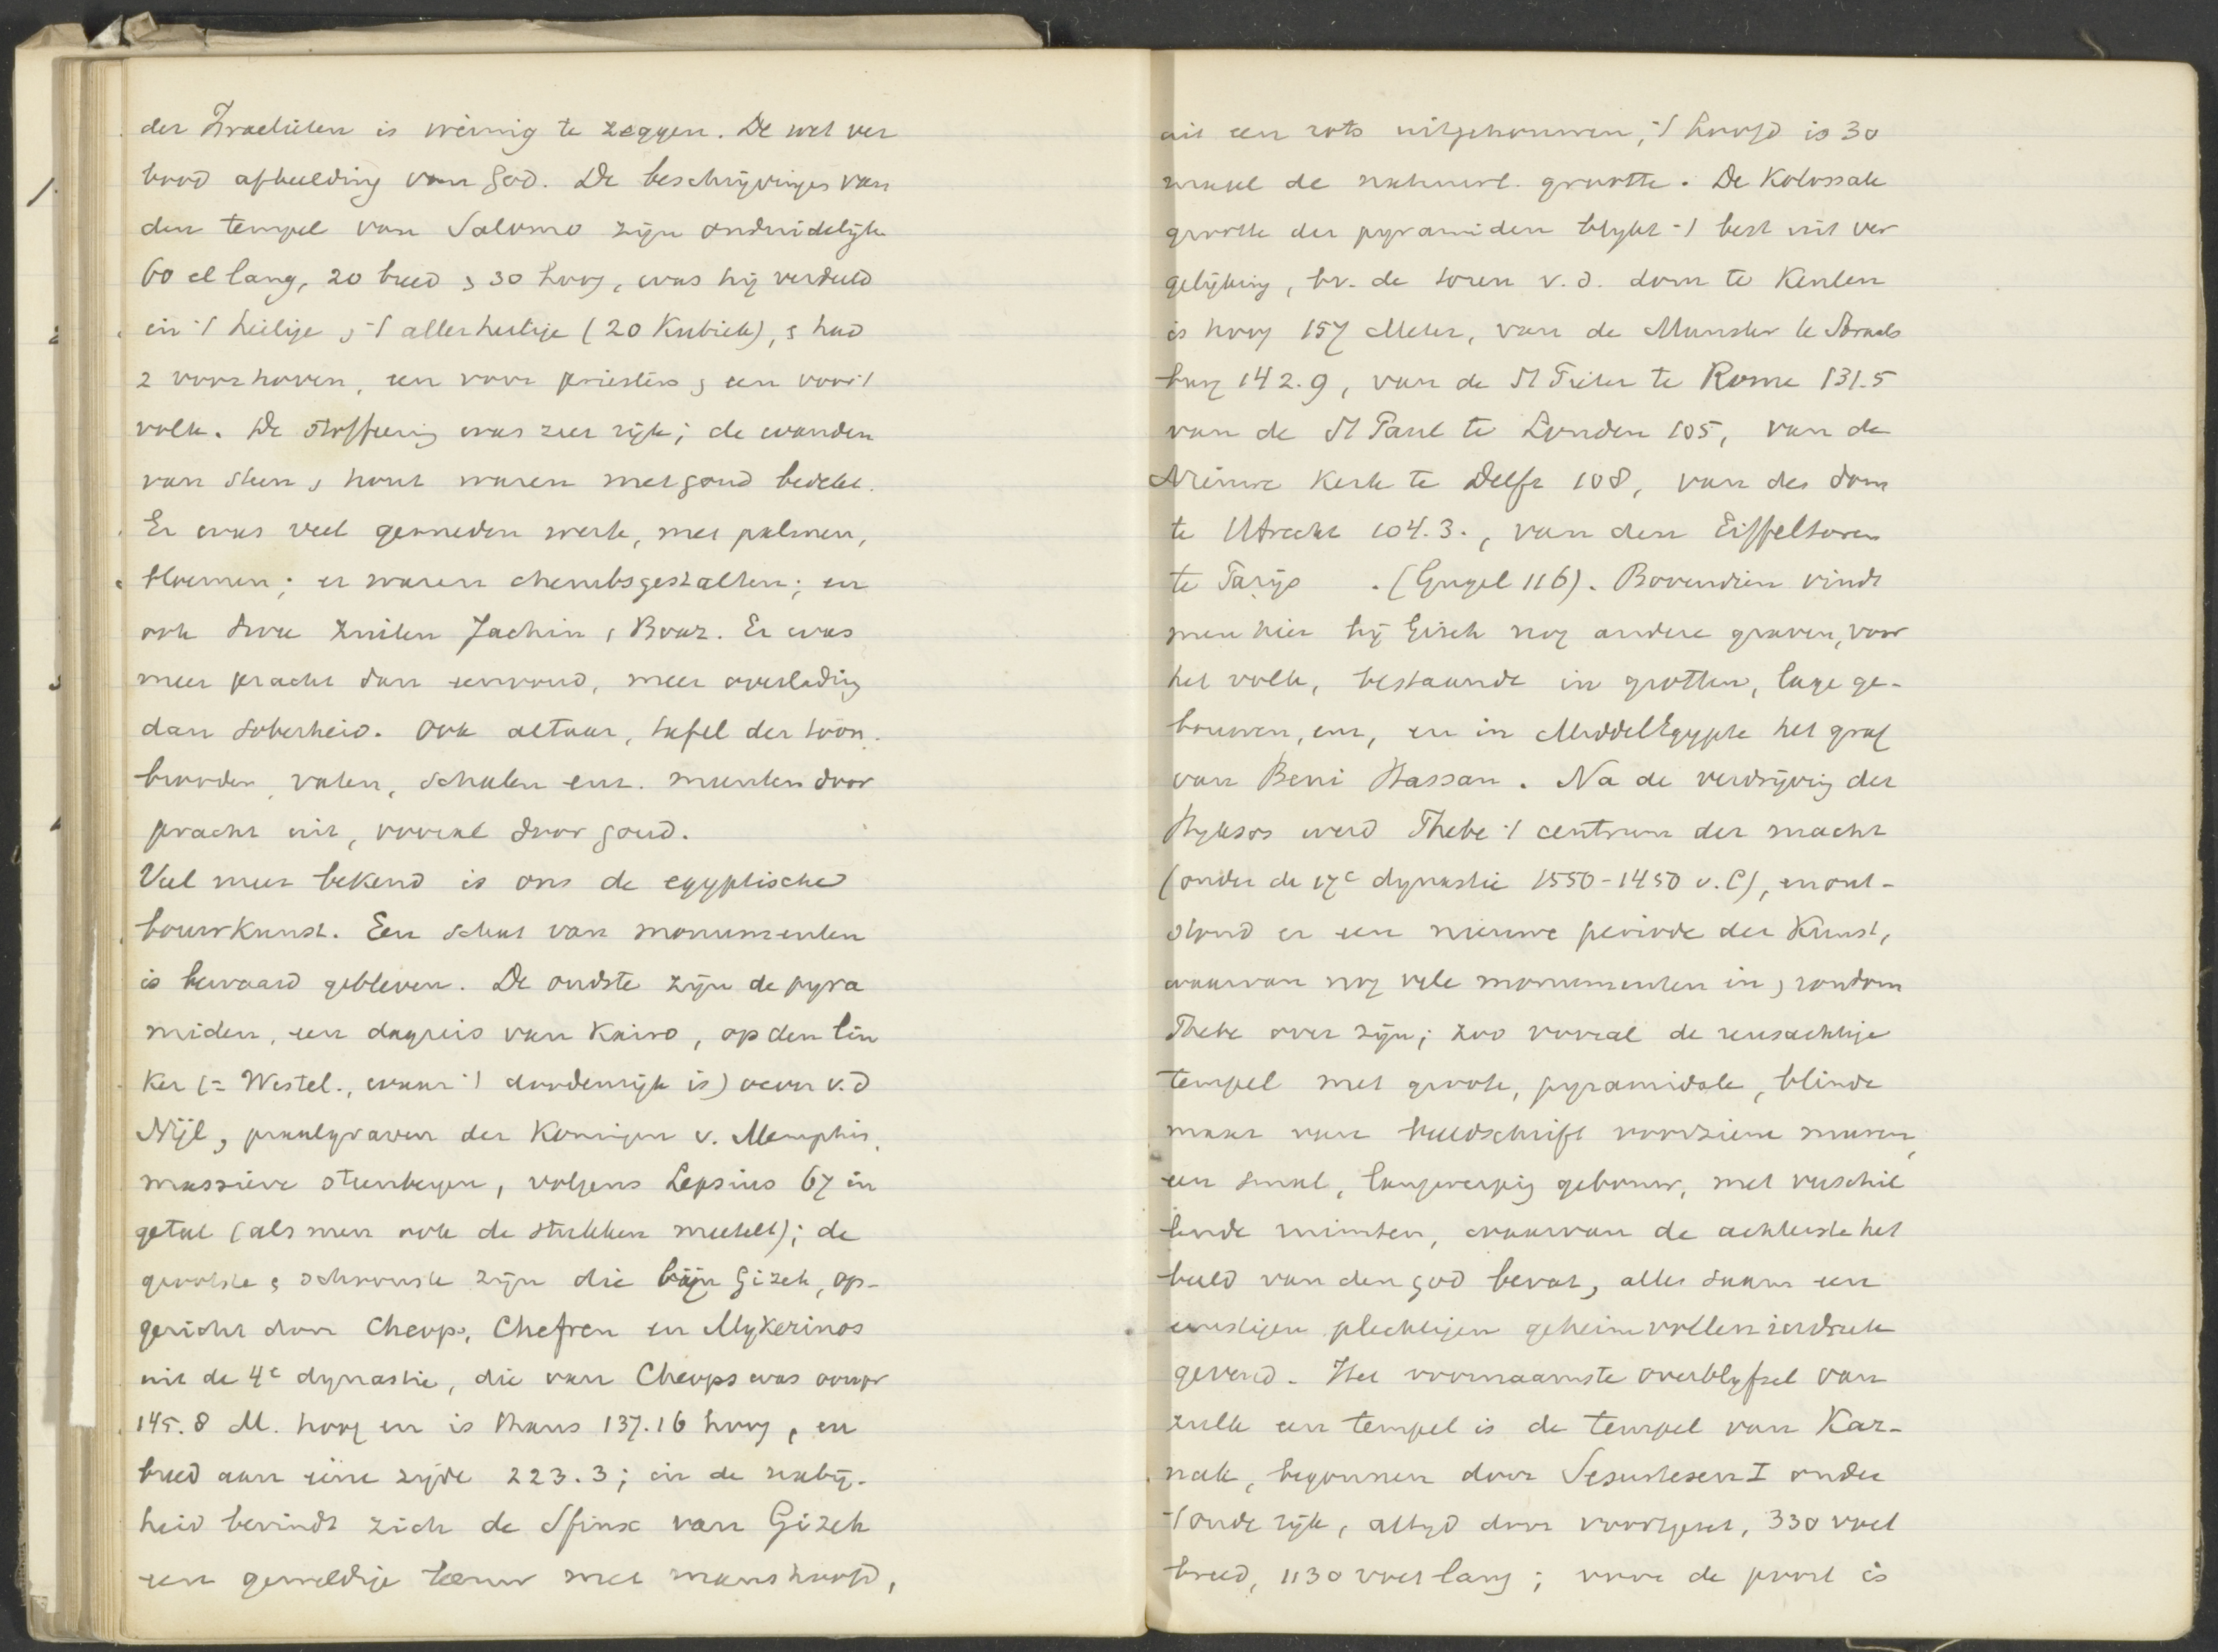 der Israelieten is weinig te zeggen. De wet ver
bood afbeelding van God. De beschrijvingen van
den tempel van Salomo zijn onduidelijk
60 el lang, 20 breed & 30 hoog, was hij verdeeld
in 't heilige & 't allerheilige (20 Kubiek), & had
2 voorhoven, een voor priesters & een voor 't
volk. De stoffeering was zeer rijk; de wanden
van steen & hout waren met goud bedekt.
Er was veel gesneden werk, met palmen,
bloemen; er waren cherubsgestalten; en
ook twee zuilen Jachin & Boaz. Er was
meer pracht dan eenvoud, meer overlading
dan soberheid. Ook altaar, tafel der toon-
brooden, vaten, schalen enz. muntten door
pracht uit, vooral door goud.
Veel meer bekend is ons de egyptische
bouwkunst. Een schat van monumenten
is bewaard gebleven. De oudste zijn de pyra
miden, een dagreis van Kairo, op den lin
ker (= Westel., waar 't doodenrijk is) oever v.d
Nijl, praalgraven der Koningen v. Memphis,
massieve steenbergen, volgens Lepsius 67 in
getal (als men ook de stukken meetelt); de
grootste & schoonste zijn die bij Gizeh, op-
gericht door Cheops, Chefren en Mykerinos
uit de 4e dynastie, die van Cheops was oorspr
145.8 M. hoog en is thans 137.16 hoog, en
breed aan eene zijde 223.3; in de nabij-
heid bevindt zich de Sfinx van Gizeh
een geweldige leeuw met manshoofd,
uit een rots uitgehouwen, 't hoofd is 30
maal de natuurl. grootte. De Kolossale
grootte der pyramiden blijkt 't best uit ver
gelijking, bv. de toren v.d. dom te Keulen
is hoog 157 Meter, van de Munster te Straats
burg 142.9, van de St Pieter te Rome 131.5
van de St Paul te Londen 105, van de
Nieuwe Kerk te Delft 108, van den dom
te Utrecht 104.3., van den Eiffeltoren
te Parijs . (Gugel 116). Bovendien vindt
men hier bij Gizeh nog andere graven, voor
het volk, bestaande in grotten, lage ge-
bouwen, enz, en in MiddelEgypte het graf
van Beni Hassan. Na de verdrijving der
Hyksos werd Thebe 't centrum der macht
(onder de 17e dynastie 1550-1450 v.C), en ont-
stond er een nieuwe periode der Kunst,
waarvan nog vele monumenten in & rondom
Thebe over zijn; zoo vooral de reusachtige
tempel met groote, pyramidale, blinde
maar van beeldschrift voorziene muren,
een smal, langwerpig gebouw, met verschil
lende ruimten, waarvan de achterste het
beeld van den god bevat, alles saam een
ernstigen plechtigen geheimvollen indruk
gevend. Het voornaamste overblijfsel van
zulk een tempel is de tempel van Kar-
nak, begonnen door Sesurtesen I onder
't oude rijk, altijd door voortgezet, 330 voet
breed, 1130 voet lang; voor de poort is